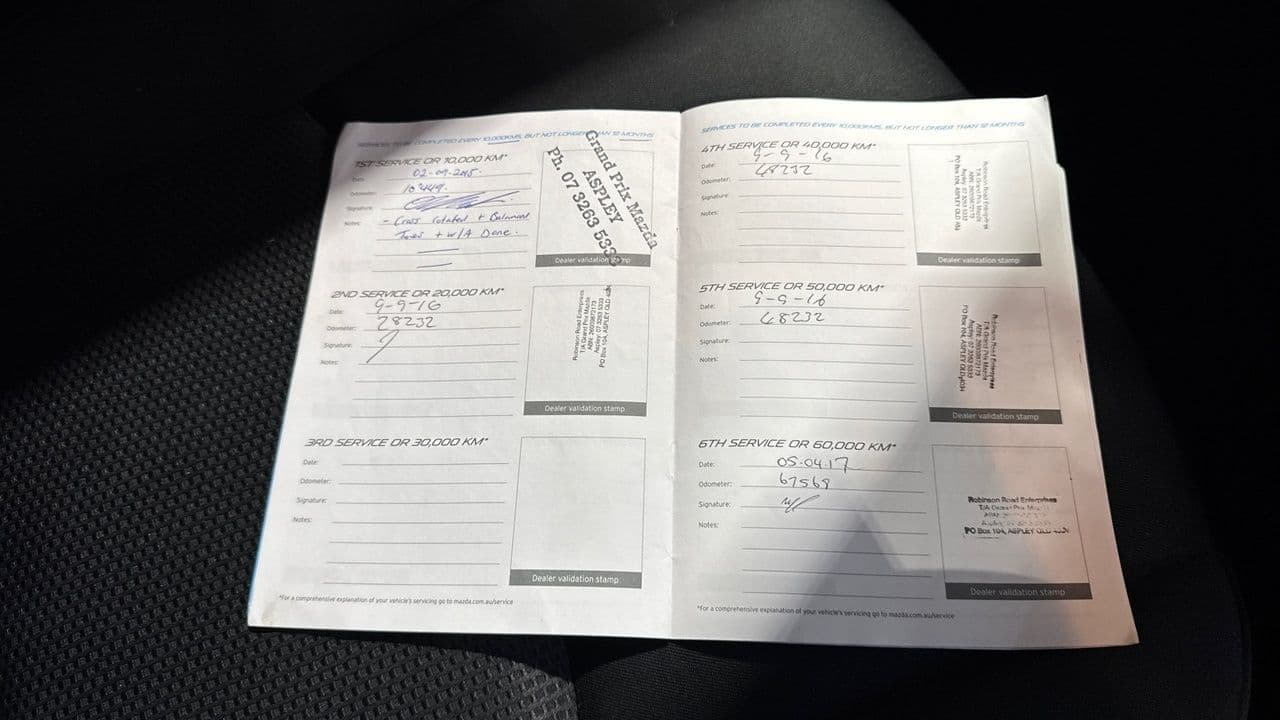 SERVICES TO BE COMPLETED EVERY 10,000KMS, BUT NOT LONGER THAN 12 MONTHS
1ST SERVICE OR 10,000 KM*
Date: 02-09-2015.
Odometer: 10449.
Signature:
Notes: - Cross rotated + Balanced
Tyres + W/A Done.
Grand Prix Mazda
ASPLEY
Ph. 07 3263 533
Dealer validation stamp
2ND SERVICE OR 20,000 KM*
Date: 9-9-16
Odometer: 28232
Signature:
Notes:
Robinson Road Enterprises
T/A Grand Prix Mazda
ABN: 26009872173
Aspley: 07 3263 5333
PO Box 104, ASPLEY QLD
Dealer validation stamp
3RD SERVICE OR 30,000 KM*
Date:
Odometer:
Signature:
Notes:
Dealer validation stamp
*For a comprehensive explanation of your vehicle's servicing go to mazda.com.au/service
SERVICES TO BE COMPLETED EVERY 10,000KMS, BUT NOT LONGER THAN 12 MONTHS
4TH SERVICE OR 40,000 KM*
Date: 9-9-16
Odometer: 48232
Signature:
Notes:
Robinson Road Enterprises
T/A Grand Prix Mazda
ABN: 26009872173
Aspley: 07 3263 5333
PO Box 104, ASPLEY QLD
Dealer validation stamp
5TH SERVICE OR 50,000 KM*
Date: 9-9-16
Odometer: 48232
Signature:
Notes:
Robinson Road Enterprises
T/A Grand Prix Mazda
ABN: 26009872173
Aspley: 07 3263 5333
PO Box 104, ASPLEY QLD 4034
Dealer validation stamp
6TH SERVICE OR 60,000 KM*
Date: 05-04.17
Odometer: 67568
Signature:
Notes:
Robinson Road Enterprises
T/A Grand Prix
PO Box 104, ASPLEY QLD
Dealer validation stamp
*For a comprehensive explanation of your vehicle's servicing go to mazda.com.au/service